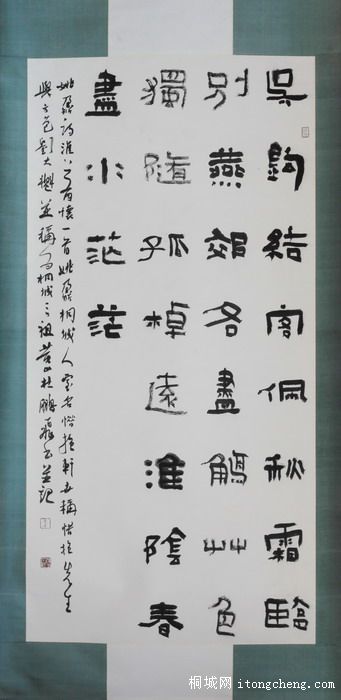 吳鉤結客佩秋霜臨
别燕郊各盡觴艸色
獨隨孤棹遠淮陰春
盡水茫茫
姚鼐詩淮上有懷一首姚鼐桐城人室名惜抱軒世稱惜抱先生
與方苞劉大櫆並稱为桐城三祖黄山杜鵬書並記
桐城网 itongcheng.com